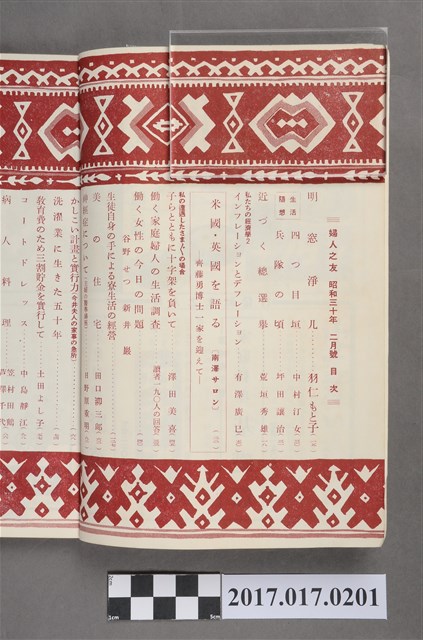 婦人之友 昭和三十年 二月號 目次
明窓淨几 羽仁もと子
生活隨想
四つ目垣 中村汀女
兵隊の頃 坪田讓治
近づく總選擧 荒垣秀雄
私たちの經濟學2
インフレーションとデフレーション 有澤廣巳
米國・英國を語る〔南澤サロン〕
―齊藤勇博士一家を迎えて―
私の遭遇したさまざまの場合
子らとともに十字架を負いて 澤田美喜
働く家庭婦人の生活調査 讀者一九〇人の回答
働く女性の今日の問題
谷野せつ 新井
生徒自身の手による寮生活の經營
美の住宅 田口
について
かしこい計畫と實行力(今井夫人の家事の急所)
洗濯業に生きた五十年
教育費のため三割貯金を實行して 土田よし子
コートドレス 中島靜江
笠村田鶴
病人料理 芦澤千代
2cm
1cm
3cm
5cm
2017.017.0201